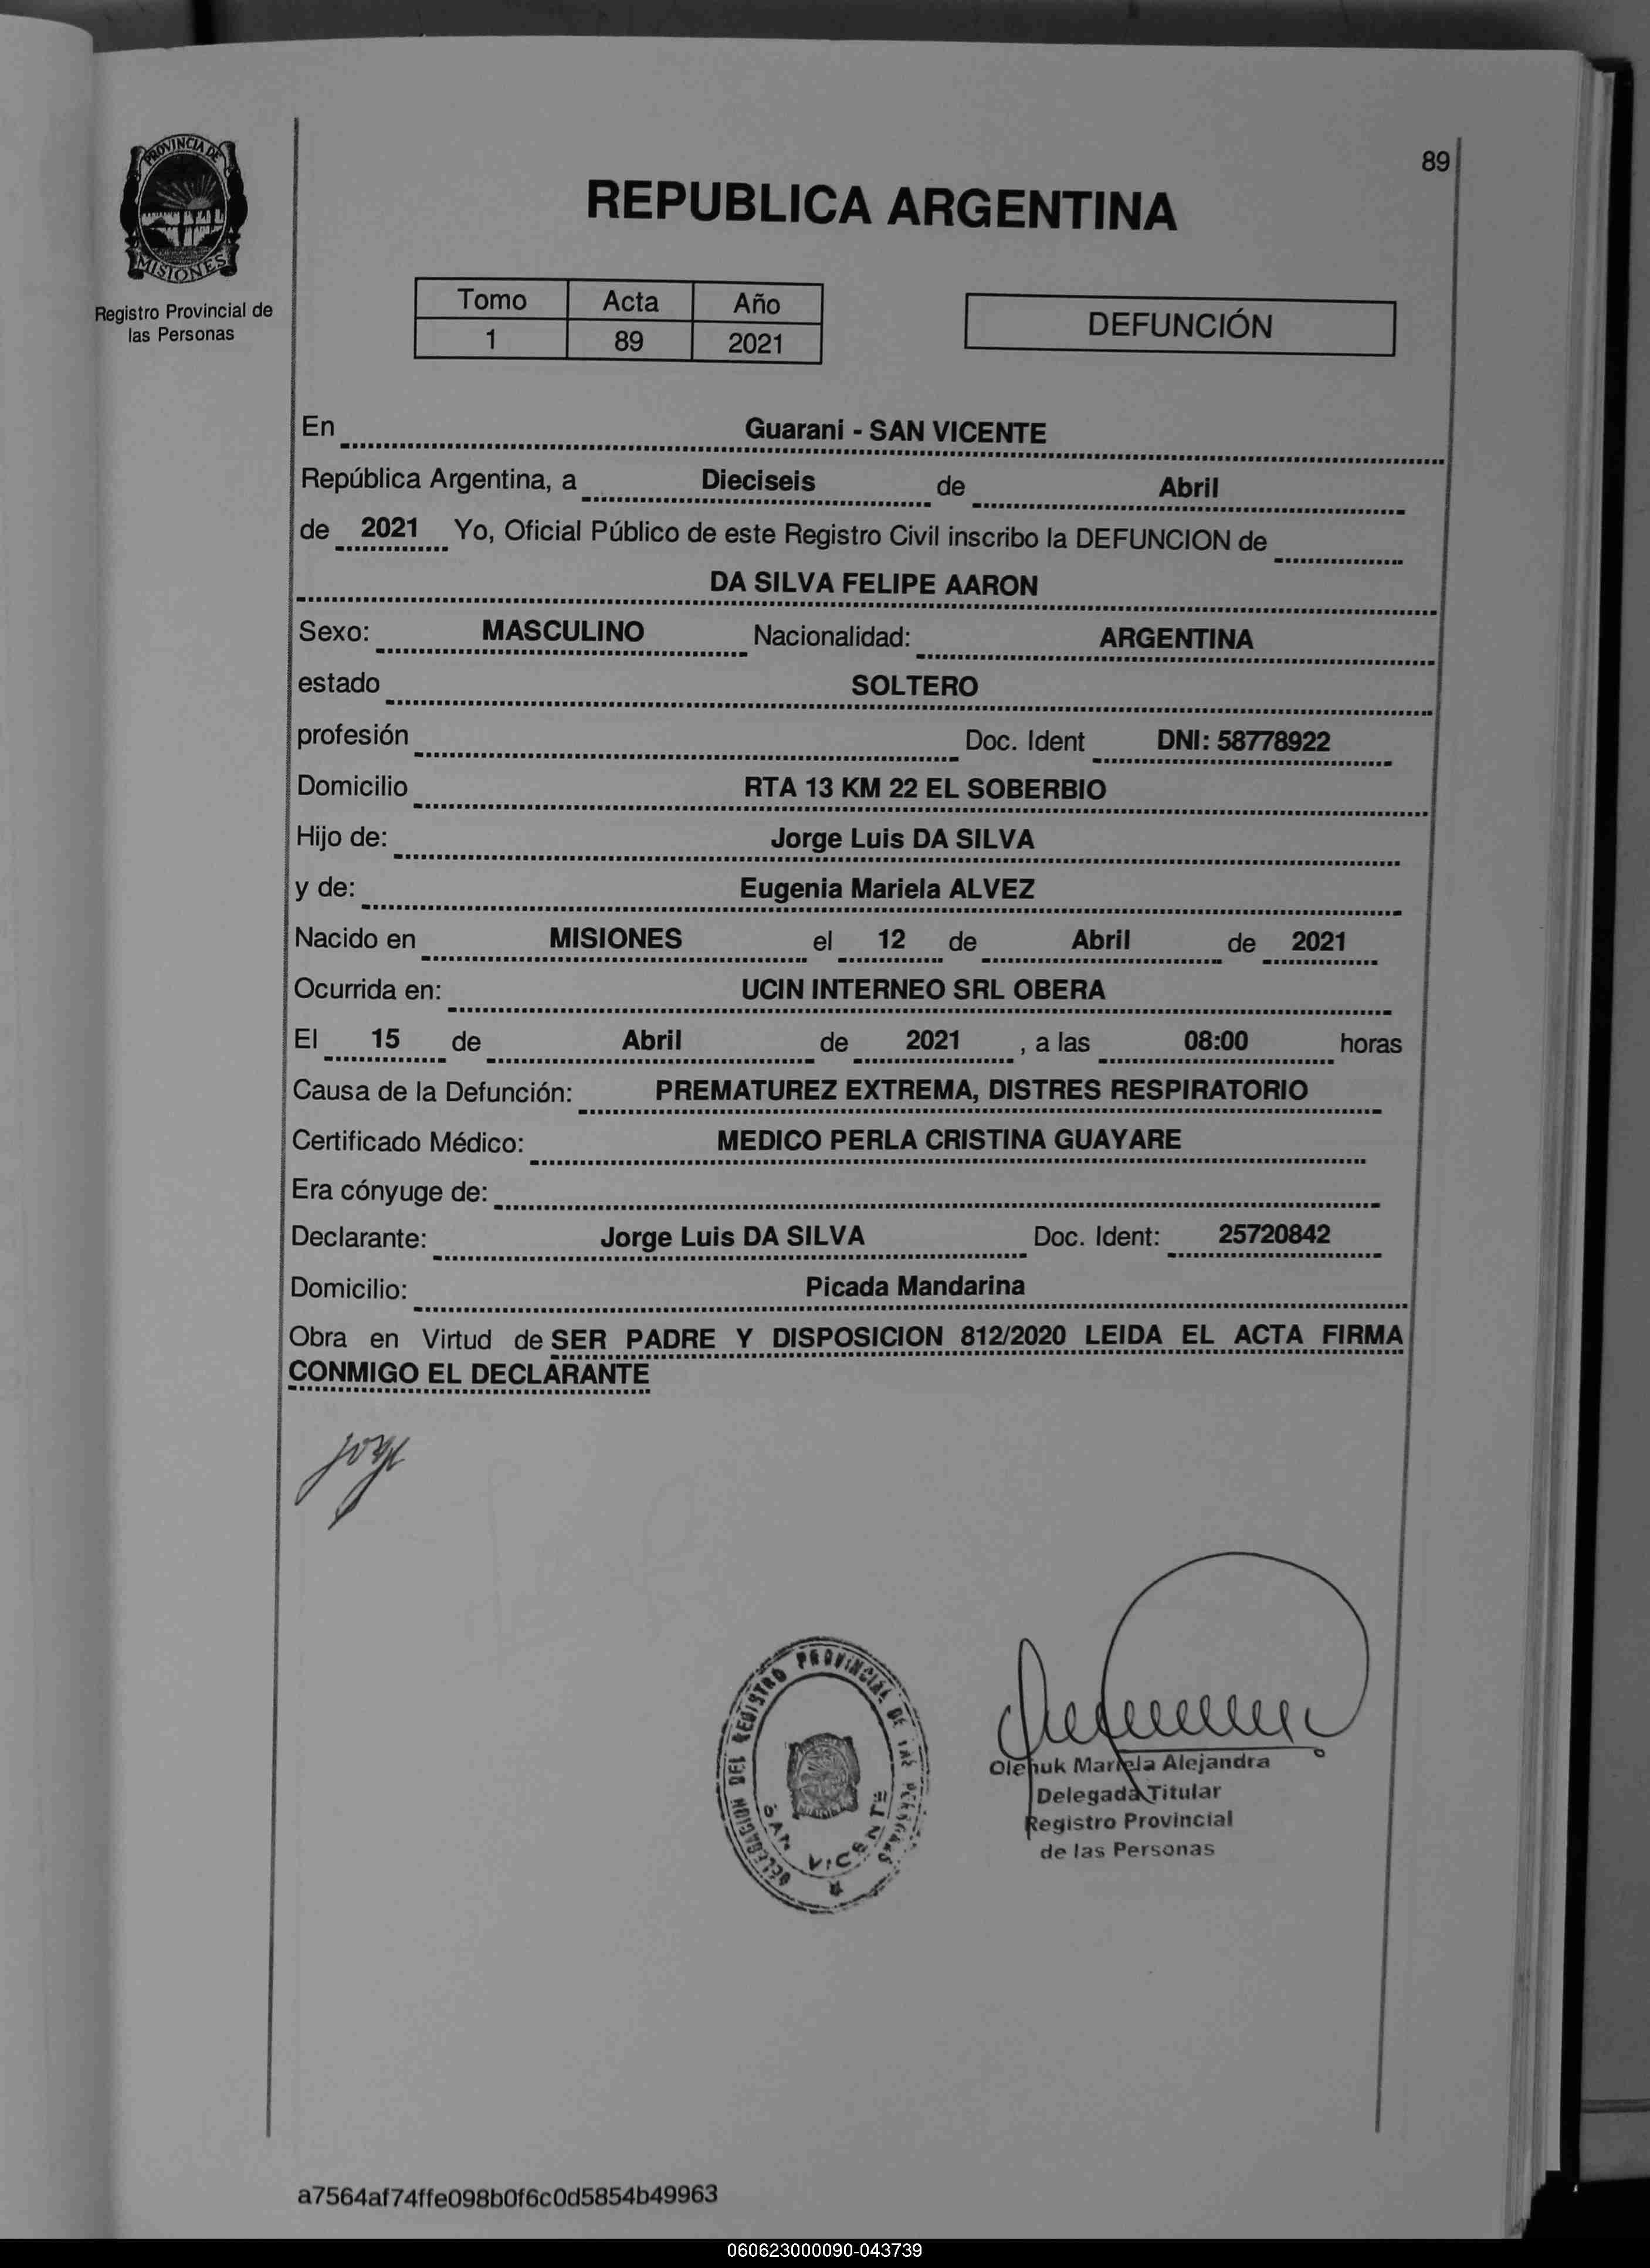 89
PROVINCIA DE
MISIONES
Registro Provincial de
las Personas
REPUBLICA ARGENTINA
Tomo Acta Año
1 89 2021
DEFUNCIÓN
En Guarani - SAN VICENTE
República Argentina, a Dieciseis de Abril
de 2021 Yo, Oficial Público de este Registro Civil inscribo la DEFUNCION de
DA SILVA FELIPE AARON
Sexo: MASCULINO Nacionalidad: ARGENTINA
estado SOLTERO
profesión Doc. Ident DNI: 58778922
Domicilio RTA 13 KM 22 EL SOBERBIO
Hijo de: Jorge Luis DA SILVA
y de: Eugenia Mariela ALVEZ
Nacido en MISIONES el 12 de Abril de 2021
Ocurrida en: UCIN INTERNEO SRL OBERA
El 15 de Abril de 2021 , a las 08:00 horas
Causa de la Defunción: PREMATUREZ EXTREMA, DISTRES RESPIRATORIO
Certificado Médico: MEDICO PERLA CRISTINA GUAYARE
Era cónyuge de:
Declarante: Jorge Luis DA SILVA Doc. Ident: 25720842
Domicilio: Picada Mandarina
Obra en Virtud de SER PADRE Y DISPOSICION 812/2020 LEIDA EL ACTA FIRMA
CONMIGO EL DECLARANTE
Jorge
DELEGACION DEL REGISTRO PROVINCIAL DE LAS PERSONAS
SAN VICENTE
Mariela Alejandra
Delegada Titular
Registro Provincial
de las Personas
a7564af74ffe098b0f6c0d5854b49963
060623000090-043739